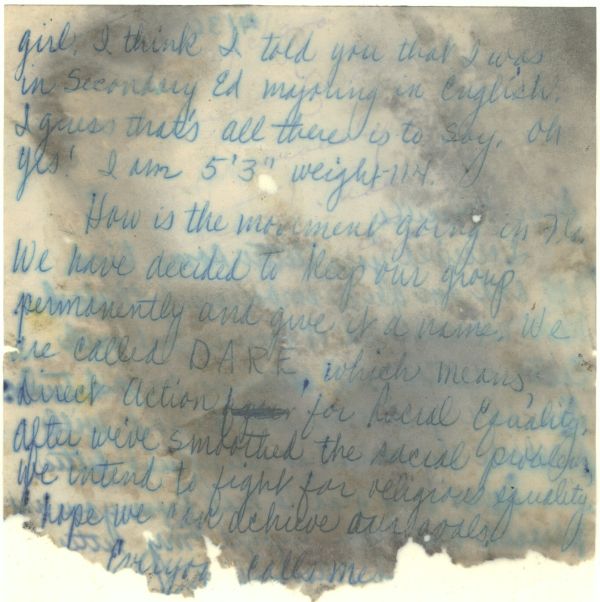 girl. I think I told you that I was
in Secondary Ed majoring in English.
I guess that's all there is to say. Oh
yes! I am 5'3" weight-114.
How is the movement going in Fla.
We have decided to keep our group
permanently and give it a name. We
are called DARE, which means
direct action for Racial Equality.
After we've smoothed the racial problem,
we intend to fight for religious equality.
I hope we can achieve our goals.
Everyone calls me